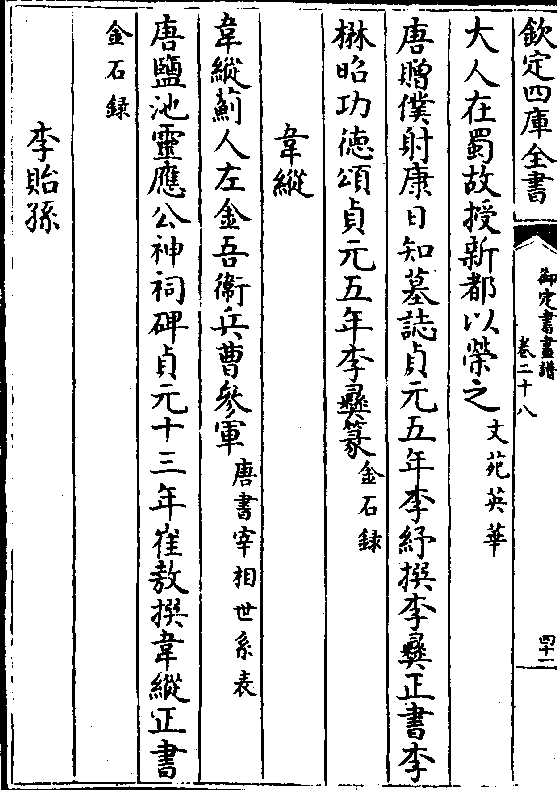 欽定四庫全書
御定書畫譜
卷二十八
四十二
大人在蜀故授新都以榮之文苑英華
唐贈僕射康日知墓誌貞元五年李紓撰李彛正書李
楙昭功德頌貞元五年李彛篆金石録
韋縱
韋縱薊人左金吾衞兵曹參軍唐書宰相世系表
唐鹽池靈應公神祠碑貞元十三年崔敖撰韋縱正書
金石録
李貽孫